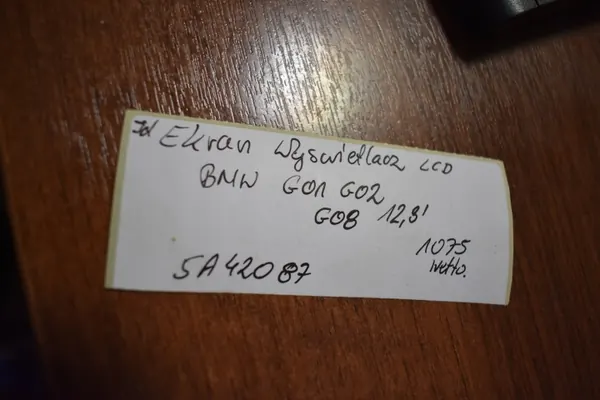 Ekran Wyswietlacz LCD
BMW G01 G02
G08 12,3'
1075
netto.
5A42087